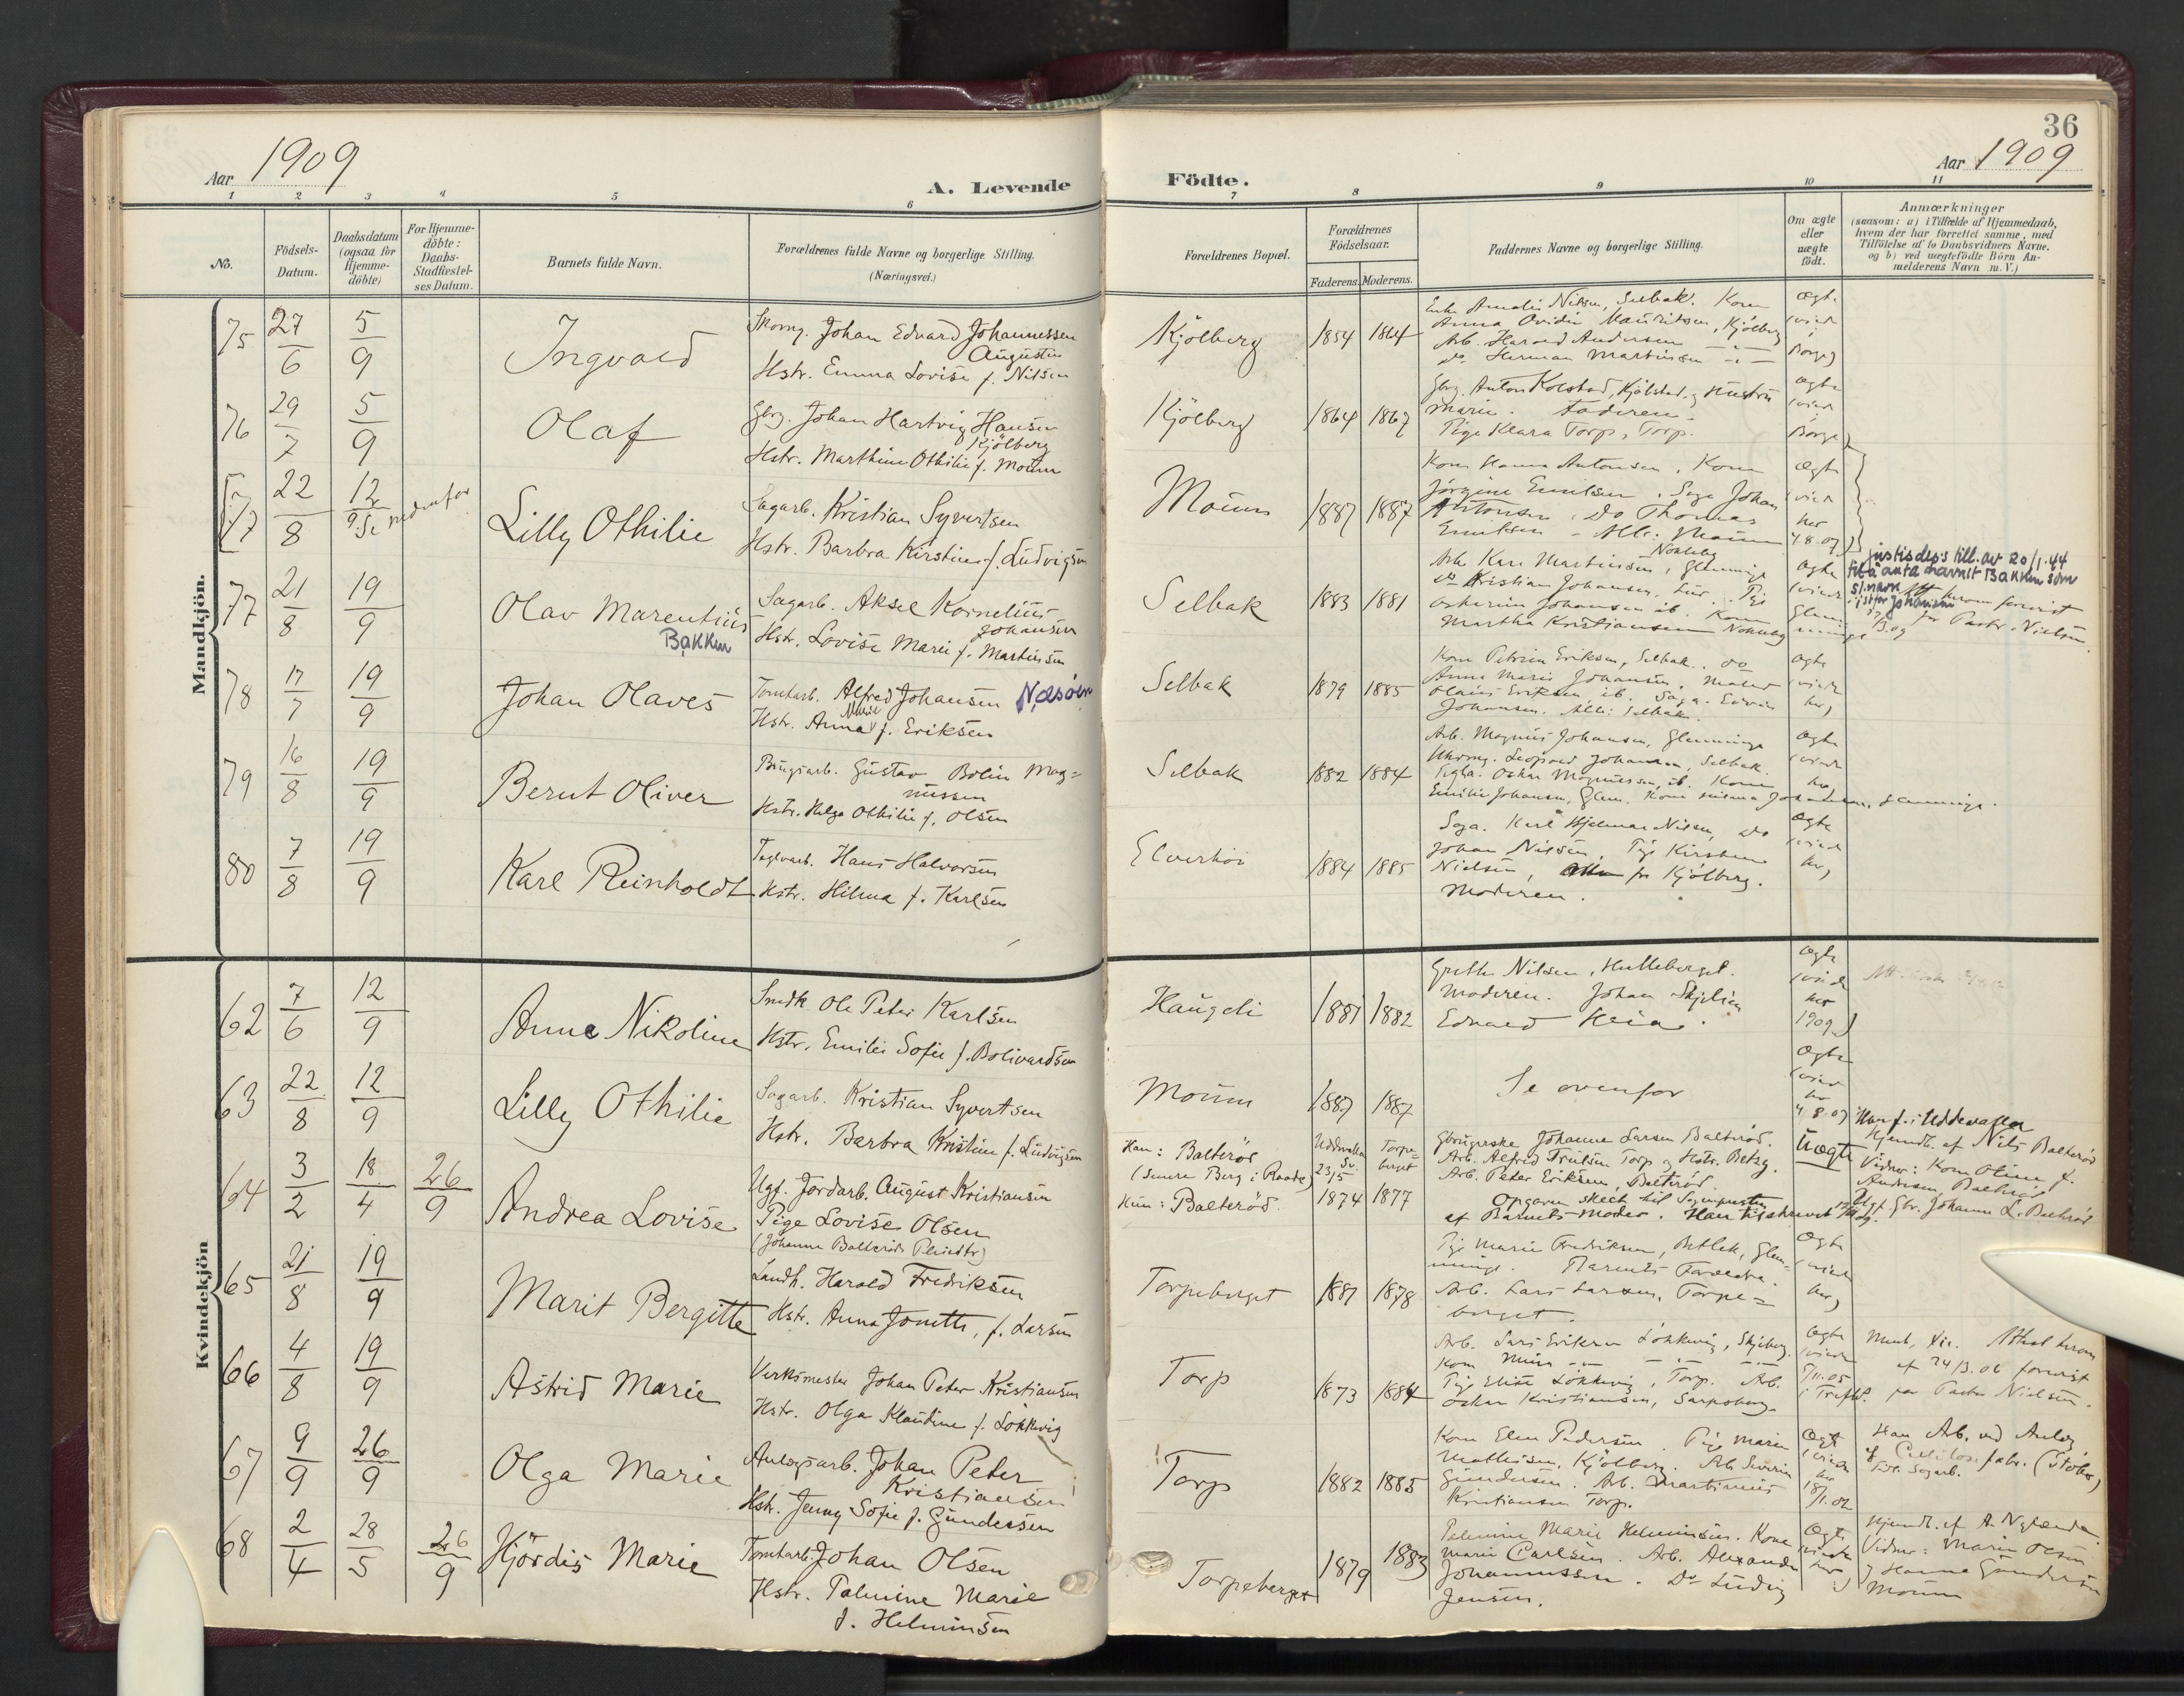 36
Aar 1909
A. Levende
Födte.
Aar 1909
1 2 3 4 5 6 7 8 9 10 11
No.
Födsels-
Datum.
Daabsdatum
(ogsaa for
Hjemme-
döbte)
For Hjemme-
döbte:
Daabs-
Stadfæstel-
ses Datum.
Barnets fulde Navn.
Forældrenes fulde Navne og borgerlige Stilling.
(Næringsvei.)
Forældrenes Bopæl.
Forældrenes
Födselsaar.
Faderens. Moderens.
Faddernes Navne og borgerlige Stilling.
Om ægte
eller
uægte
födt.
Anmærkninger
(saasom: a) i Tilfælde af Hjemmedaab,
hvem der har forrettet samme, med
Tilföielse af to Daabsvidners Navne.
og b) ved uægtefödte Börn An-
melderens Navn m. V.)
Mandkjön.
75 27/6 5/9 Ingvald
Johan Edvard Johannessen
Augustin
Hstr. Emma Lovise f. Nilsen
Kjölberg 1854 1864
Enke Amalie Nilsen, Selbak. Kone
Anna Ovidia Mauritsen, Kjölberg
Arb. Harald Andersen
do Herman Martinsen
Ægte
(viede
Borge)
76 29/7 5/9 Olaf
Gbrg. Johan Hartvig Hansen
Kjölberg
Hstr. Marthine Othilie f. Moum
Kjölberg 1864 1867
Gbrg. Anton Kolstad, Kjölstad, og Hustru
Marie. Faderen.
Pige Klara Torp, Torp.
Ægte
(viede
Borge)
77 22/8 12/9 Se nedenfor
Lilly Othilie
Sagarb. Kristian Syvertsen
Hstr. Barbra Kirstine f. Ludvigsen
Moum 1887 1887
Kone Hanna Antonsen, Kone
Jörgine Emilsen. Saga. Johan
Antonsen. Do Thomas
Emilsen. Alle: Moum
Ægte
(viede
her
4.8.07)
77 21/8 19/9 Olav Marentius
Bakken
Sagarb. Aksel Kornelius
Johansen
Hstr. Lovise Marie f. Martinsen
Selbak 1883 1881
Arb. Karl Martinsen, Glemminge
do Kristian Johansen, . Pige
Johansen ib. Kone
Martha Kristiansen
Ægte
(viede
Glem-
minge
justisdep.s till. av 20/1.44
til å anta navnet Bakken som
sl.navn
istfor Johansen
Pastor Nielsen
78 17/7 19/9 Johan Olaves
Tomtarb. Alfred Johansen Næsöen
Marie
Hstr. Anna f. Eriksen
Selbak 1879 1885
Kone Petrine Eriksen, Selbak. do
Anna Marie Johansen,
Olaus Eriksen ib. Saga. Edvin
Johansen. Alle: Selbak.
Ægte
(viede
her)
79 16/8 19/9 Bernt Oliver
Brugsarb. Gustav Bolin Mag=
nussen
Hstr. Helga Othilie f. Olsen
Selbak 1882 1884
Arb. Magnus Johansen, Glemminge
Leopold Johansen, Selbak.
Oskar Magnussen, ib. Kone
Emilie Johansen, Glem. Kone Johansen, Glemminge.
Ægte
(viede
her)
80 7/8 19/9 Karl Reinholdt
Teglvarb. Hans Halvorsen
Hstr. Hilma f. Karlsen
Elverhöi 1884 1885
Saga. Karl Hjelmar Nilsen, do
Johan Nilsen, Pige Kirstine
Nielsen, fr Kjölberg.
Moderen.
Ægte
(viede
her)
Kvindekjön
62 7/6 12/9 Anna Nikoline
Smdk Ole Peter Karlsen
Hstr. Emilie Sofie f. Bolivardsen
Haugeli 1881 1882
Grethe Nilsen, Hulleberget.
Moderen. Johan
Edvard
Ægte
(viede
her
1909)
63 22/8 12/9 Lilly Othilie
Sagarb. Kristian Syvertsen
Hstr. Barbra Kristine f. Ludvigsen
Moum 1887 1887
Se ovenfor
Ægte
(viede
her
4.8.07
64 3/2 18/4 26/9 Andrea Lovise
Ugf. Jordarb. August Kristiansen
Pige Lovise Olsen
(Johanne Balteröds Pleiedtr)
Han: Balteröd
(senere Berg i Raade)
Hun: Balteröd
Uddevalla
Sv.
23/5
1874
Torpe=
berget
1877
Gbrugerske Johanne Larsen Balteröd.
Arb. Alfred Trulsen Torp og Hstr. Betzy.
Arb. Peter Eriksen, Balteröd.
Opgaven skeet til Sognepresten
af Barnets Moder. Han tilskrevet
Uægte
Han f. i Uddevalla
Hjemdb. af Nils Balteröd
Vidner: Kone Oline f.
Andersen, Balteröd
Ugt. Gbr. Johanne L. Balteröd
65 21/8 19/9 Marit Bergitte
Landh. Harald Fredriksen
Hstr. Anna Jonette, f. Larsen
Torpeberget 1881 1878
Pige Marie Fredriksen, Glem-
minge. Barnets Forældre.
Arb. Lars Larsen, Torpe=
berget.
Ægte
(viede
her)
66 4/8 19/9 Astrid Marie
Verksmester Johan Peter Kristiansen
Hstr. Olga Klaudine f. Lökkevig
Torp 1873 1884
Arb. Lars Eriksen Lökkevig, Skjeberg.
Kone
Pige Elise Lökkevig, Torp. Arb.
Oskar Kristiansen, Sarpsborg.
Ægte
(viede
5/11.05
Attest herom
af 24/3.06 forevist
for Pastor Nielsen.
67 9/9 26/9 Olga Marie
Anlægsarb. Johan Peter
Kristiansen
Hstr. Jenny Sofie f. Gundersen
Torp 1882 1885
Kone Elen Pedersen. Pige Marie
Mathisen, Kjölberg. Arb. Severin
Gundersen. Arb. Martinius
Kristiansen Torp.
Ægte
(viede
her
18/1.02
Han Arb. ved Anlæg
af Cellulosefabr.
68 2/4 28/5 26/9 Hjördis Marie
Tomtarb. Johan Olsen
Hstr. Palmine Marie
f. Helminsen
Torpeberget 1879 1883
Palmine Marie Helminsen. Kone
Marie Carlsen. Arb. Alexander
Johannessen. Do Ludvig
Jensen.
Ægte
(viede
her)
Hjemdb. af A. Nylænde.
Vidner: Marie Olsen
og Hanna Gundersen
Moum